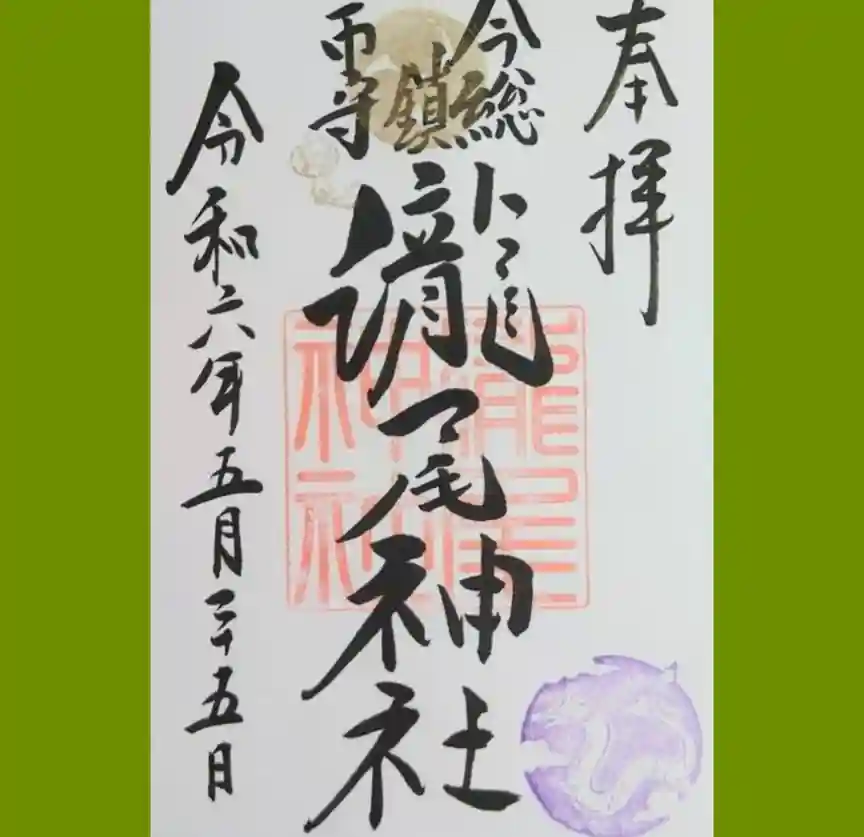 奉拝
総鎮守
龍尾神社
龍尾神社
令和六年五月二十五日